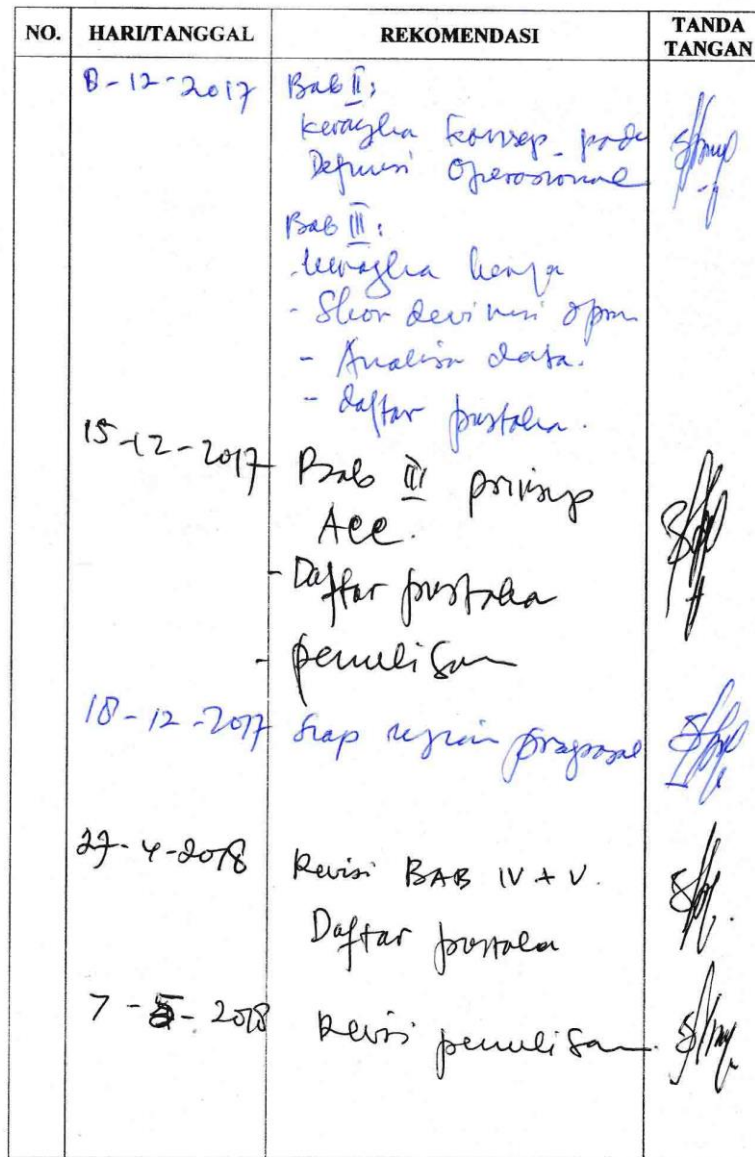 NO. HARI/TANGGAL REKOMENDASI TANDA TANGAN
8-12-2017 Bab II:
kerangka konsep pada
Definisi Operasional
Bab III:
kerangka kerja
- Skor devinisi opra
- Analisa data.
- daftar pustaka.
15-12-2017 Bab III prinsip
Acc.
- Daftar pustaka
- penulisan
18-12-2017 Siap ujian proposal
27-4-2018 Revisi BAB IV + V.
Daftar pustaka
7-5-2018 Revisi penulisan.